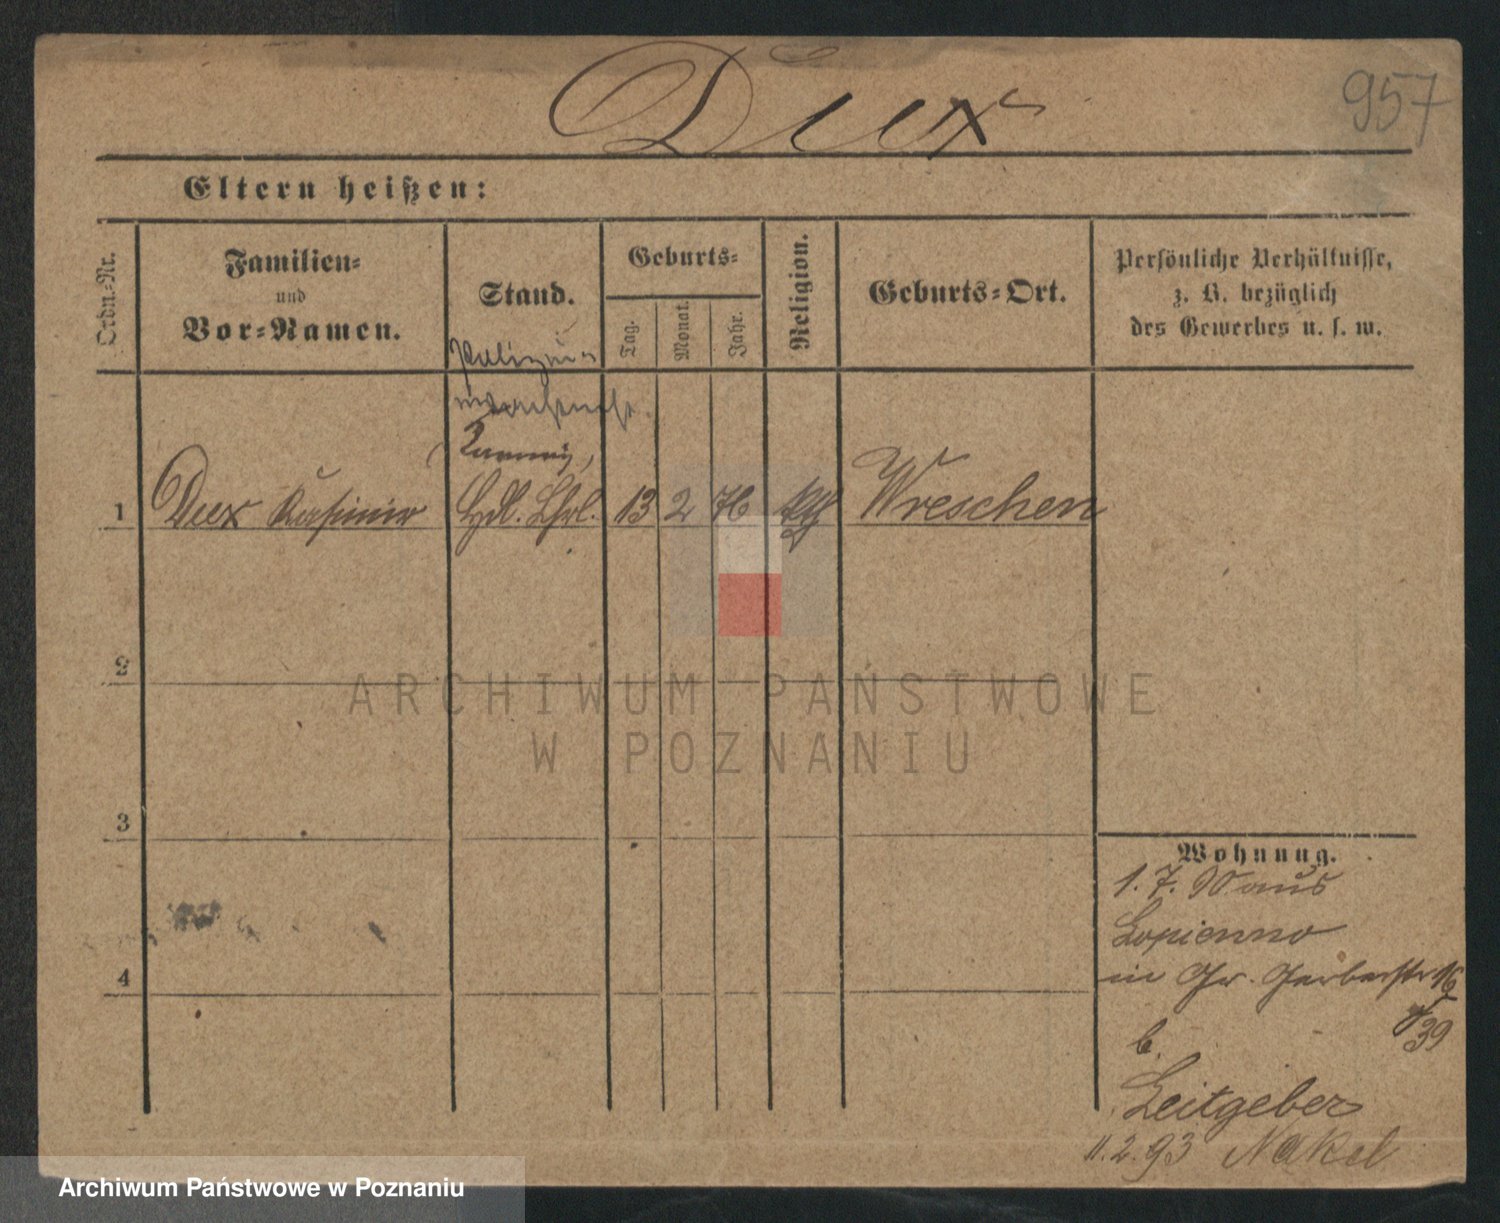 Dux
957
Eltern heißen:
Ordn.-Nr.
Familien-
und
Vor-Namen.
Stand.
Geburts-
Tag.
Monat.
Jahr.
Religion.
Geburts-Ort.
Persönliche Verhältnisse,
z. B. bezüglich
des Gewerbes u. s. w.
1 Dux Kasimir Hdl. Lhrl. 13 2 76 kth Wreschen
2
3
4
Wohnung.
1. 7. 90 aus
Lopienno
in Gr. Gerberstr 16
39
b.
Leitgeber
11. 2. 93 Nakel
ARCHIWUM PAŃSTWOWE
W POZNANIU
Archiwum Państwowe w Poznaniu